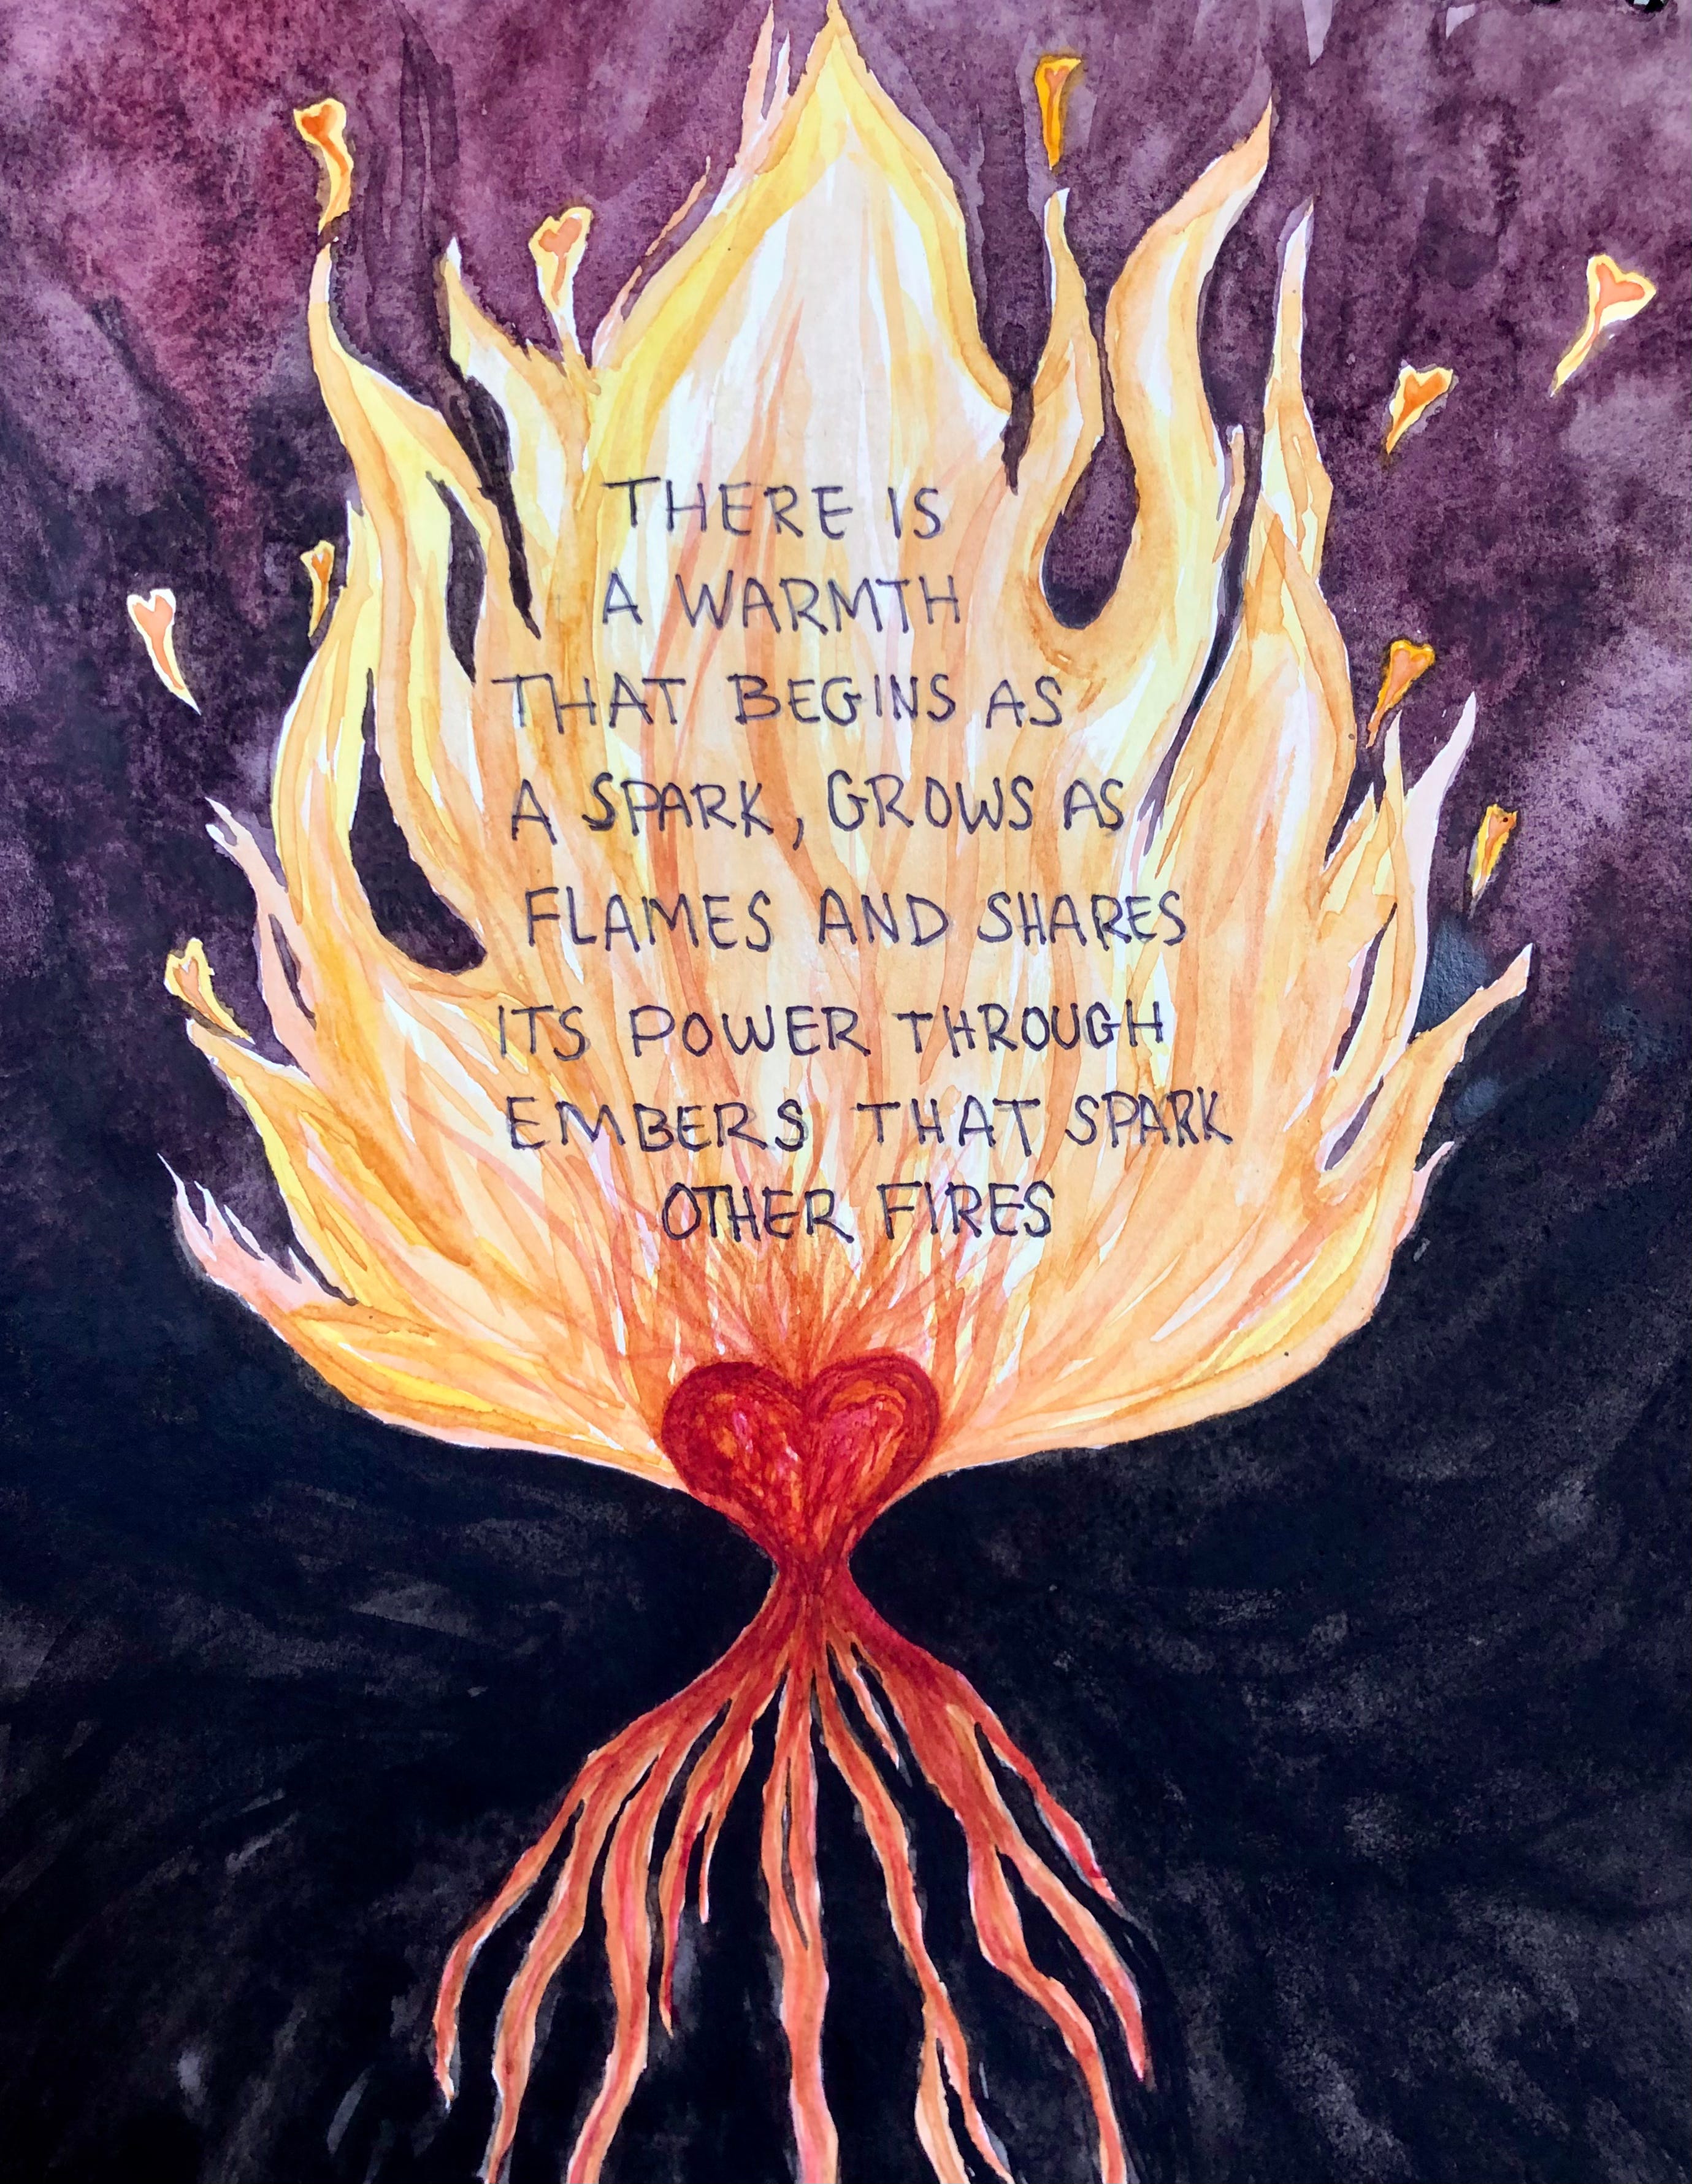 THERE IS
A WARMTH
THAT BEGINS AS
A SPARK, GROWS AS
FLAMES AND SHARES
ITS POWER THROUGH
EMBERS THAT SPARK
OTHER FIRES